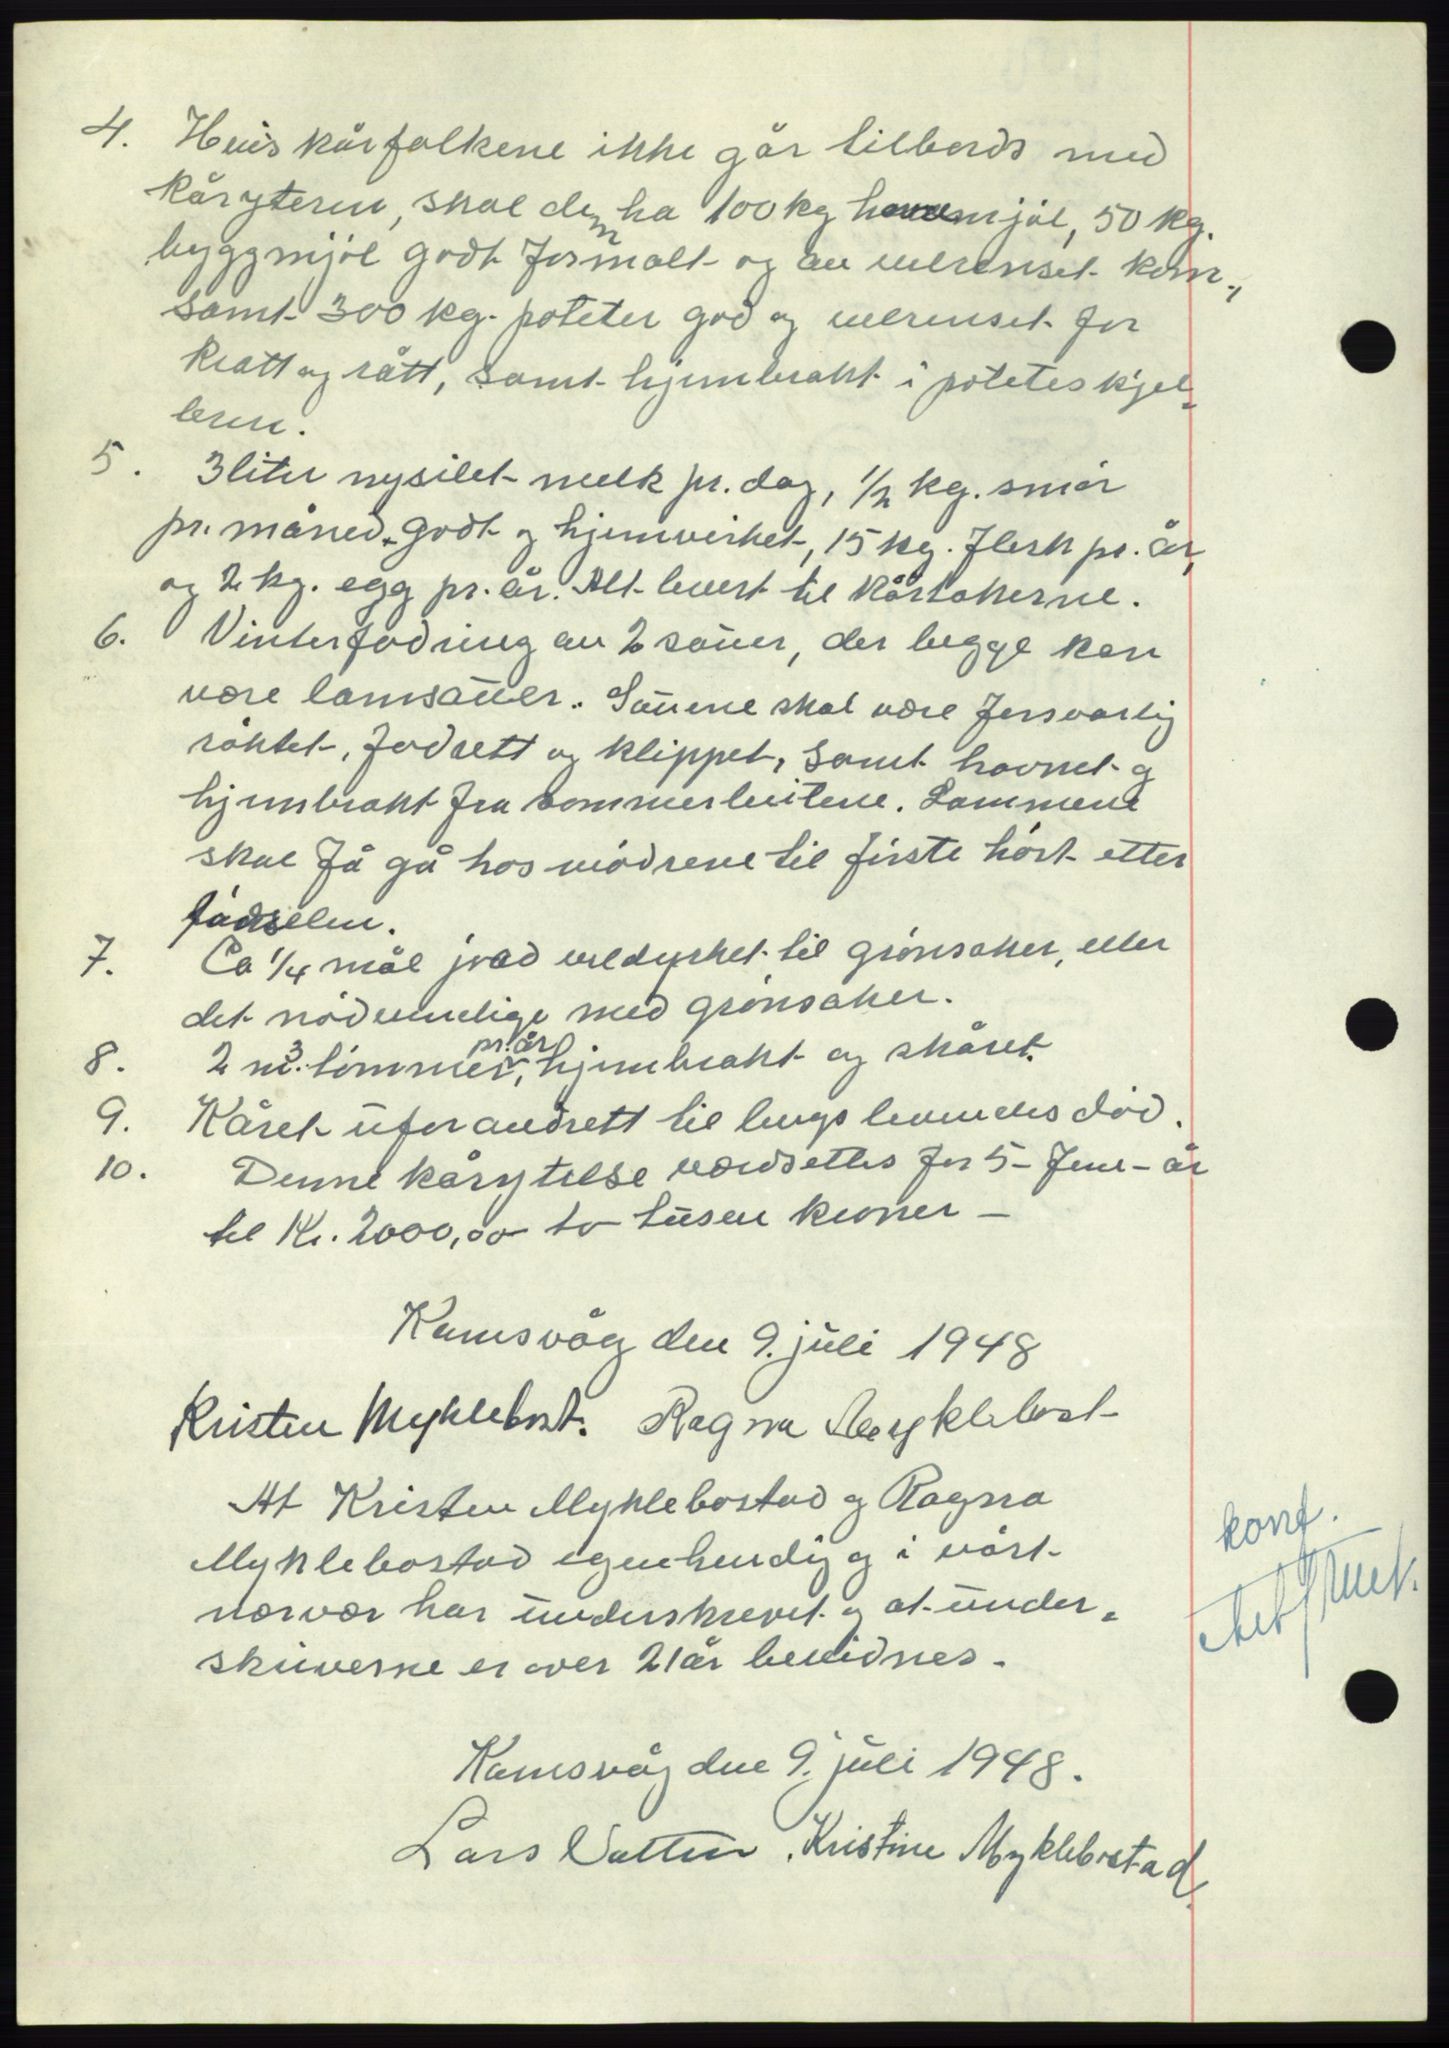 4. Hvis kårfolkene ikke går tilbords med
kåryteren, skal dem ha 100 kg havremjøl, 50 kg.
byggmjøl godt formalt og av velrenset korn,
samt 300 kg. poteter god og velrenset for
kratt og rått, samt hjembrakt i poteteskjel-
leren.
5. 3 liter nysilet melk pr. dag, 1/2 kg. smør
pr. måned. godt og hjemvirket, 15 kg. flesk pr. år,
og 2 kg. egg pr. år. Alt levert til kårtakerne.
6. Vinterfodring av 2 sauer, der begge kan
være lamsauer. Sauene skal være forsvarlig
røktet, fodrett og klippet, samt havnet og
hjembrakt fra sommerbeitene. Lammene
skal få gå hos mødrene til første høst etter
fødselen.
7. Ca 1/4 mål jord veldyrket til grønsaker, eller
det nødvendige med grønsaker.
8. 2 m3. tømmer pr. år, hjembrakt og skåret.
9. Kåret uforandrett til lengs levendes død.
10. Denne kårytelse verdsettes for 5 - fem - år
til Kr. 2000,00 to tusen kroner -
Kamsvåg den 9. juli 1948
Kristen Myklebost. Ragna Myklebost
At Kristen Myklebostad og Ragna
Myklebostad egenhendig og i vårt
nærvær har underskrevet og at under-
skriverne er over 21 år bevidnes.
konf.
Kamsvåg den 9. juli 1948.
Lars Vatten. Kristine Myklebostad